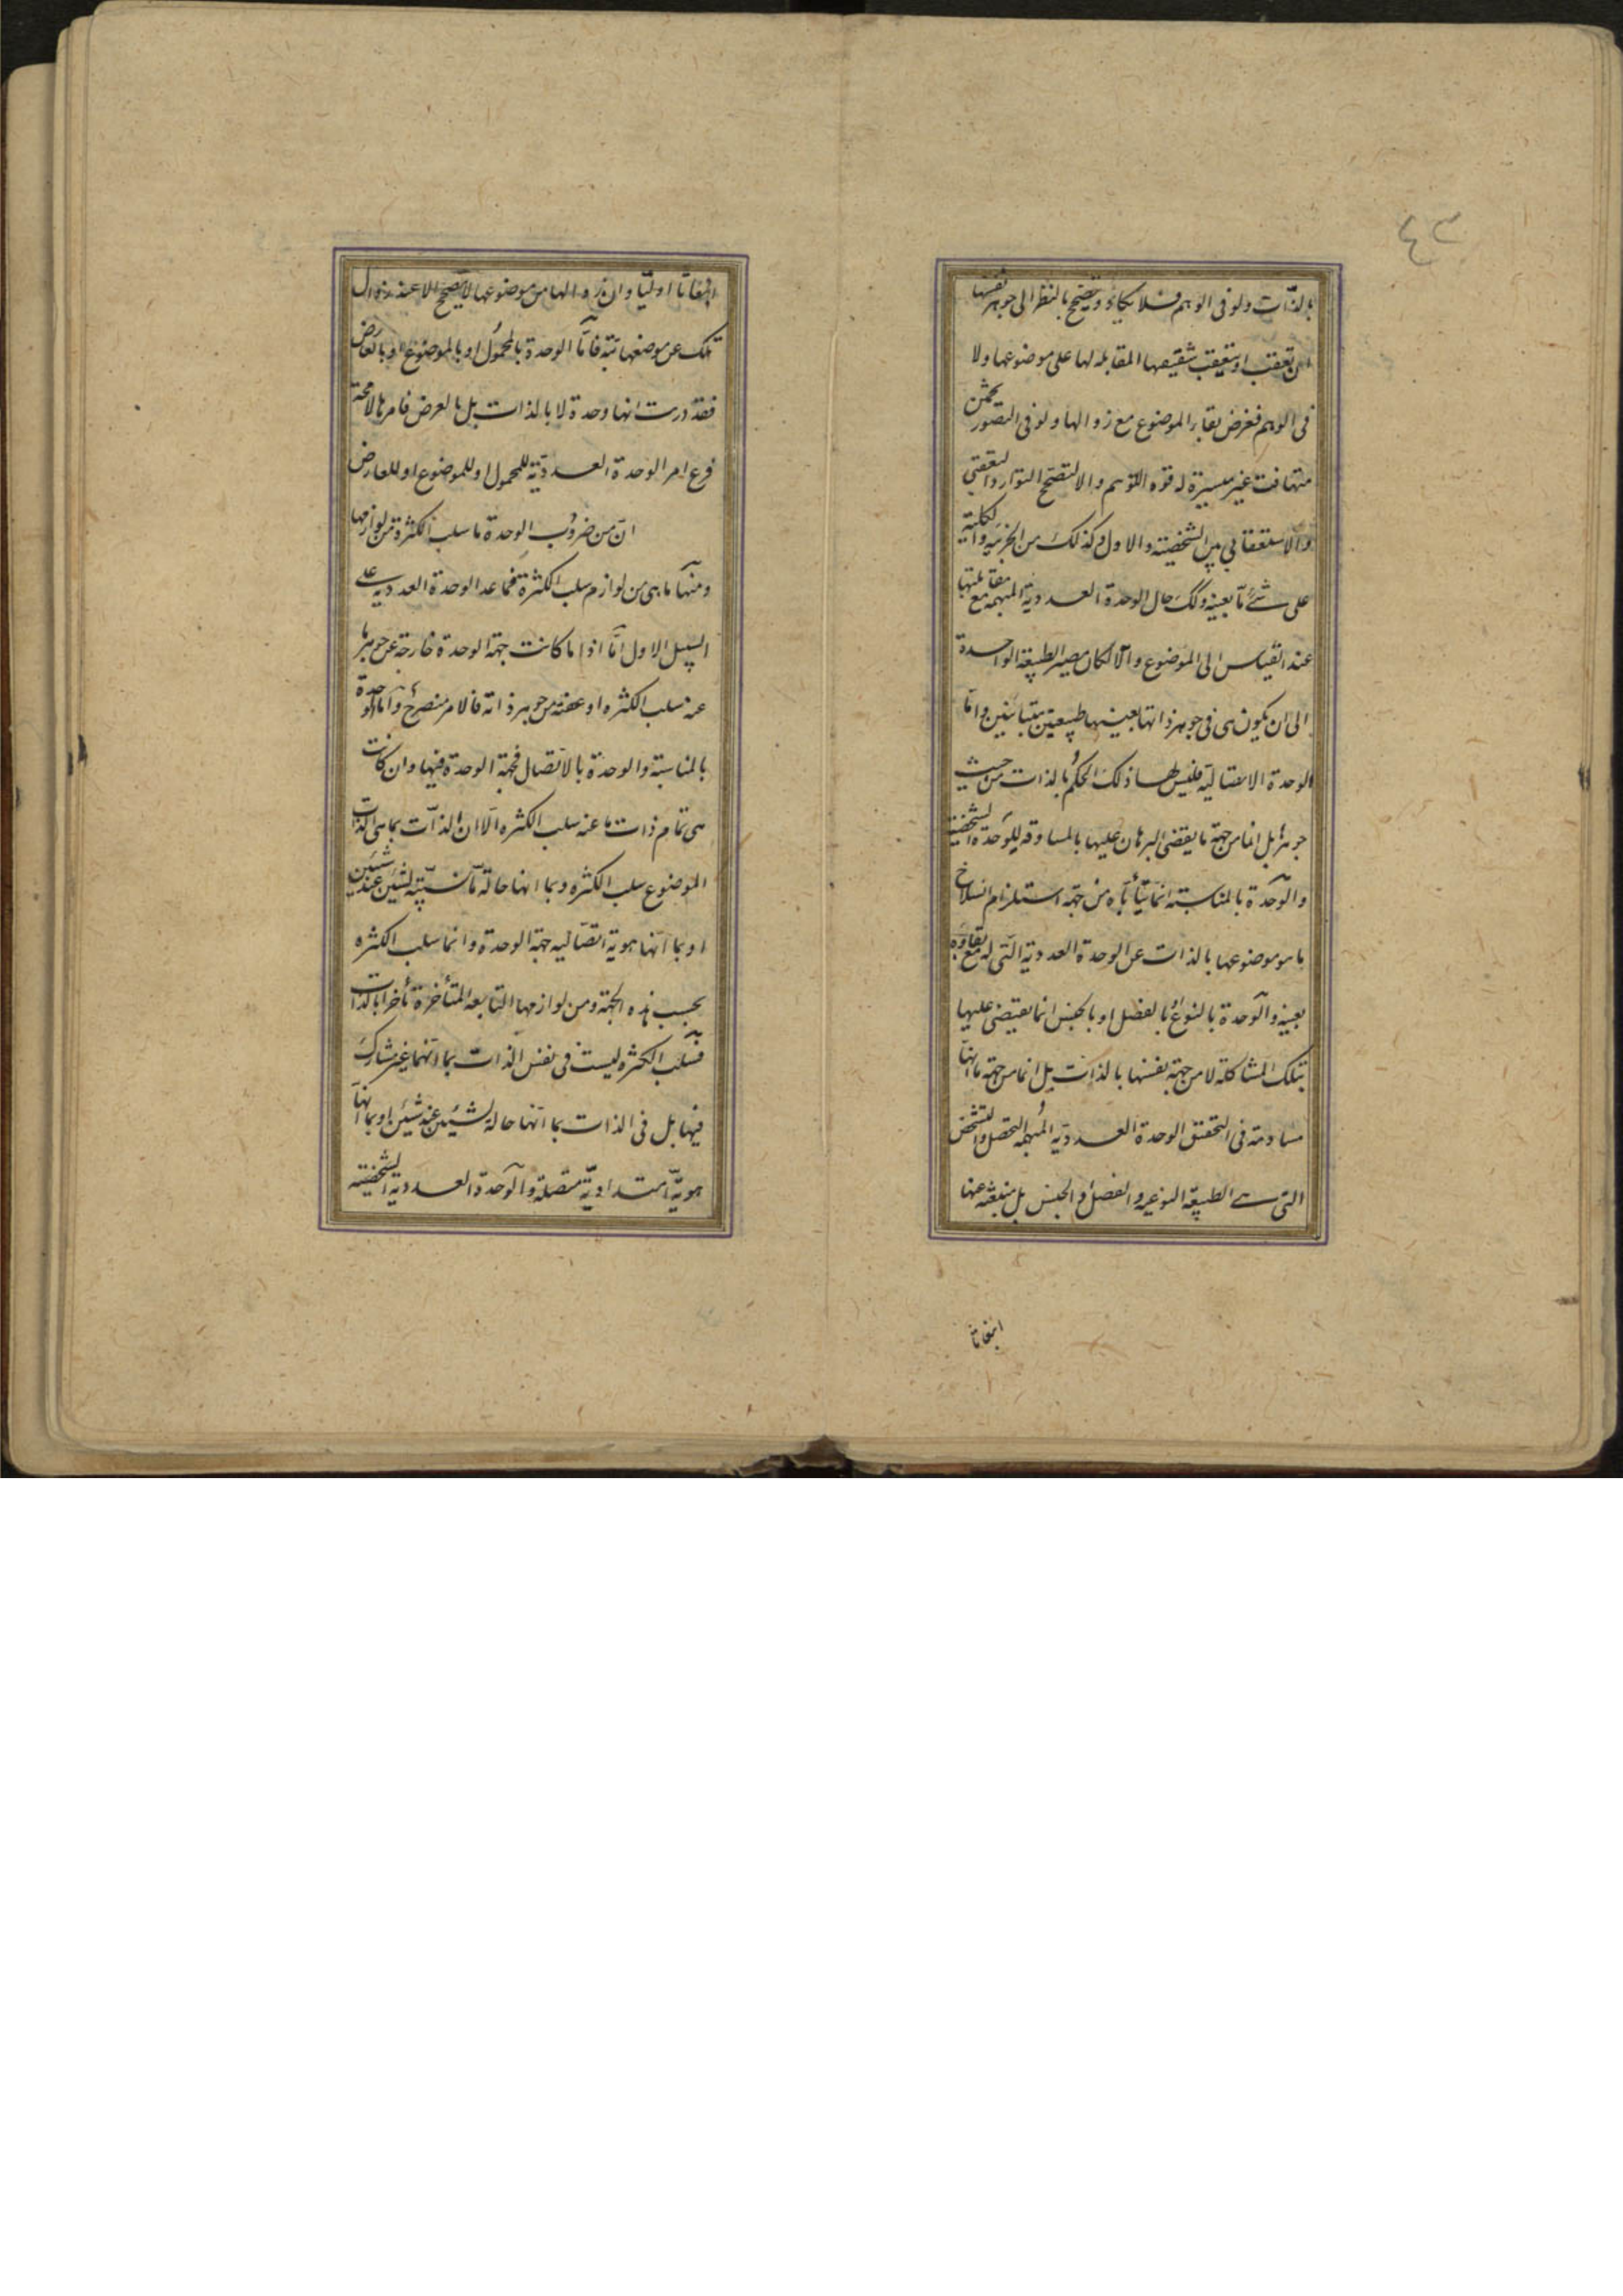 ٤٣
بالذات ولو فى الوهم فلا يكاد ويتصحح بالنظر الى جوهر نفسها
ان تعقب او يتعقب شقيقها المقابلة لها على موضوعها ولا
فى الوهم ففرض بقاء الموضوع مع زوالها ولو فى التصور
متهافت غير ميسرة له قوة التوهم والا لتصحح التوارد التعقبى
والاستعقابى بين الشخصية والاول وكذلك من الجزئية والكلية
على شئ ما بعينه وكك حال الوحدة العددية المبهمة مع مقابلتها
عند القياس الى الموضوع والا لكان مصير الطبيعة الواحدة
الى ان يكون هى فى جوهر ذاتها بعينها طبيعتين متباينتين واما
الوحدة الاتصالية فليس لها ذلك الحكم بالذات من حيث
جوهرها بل انما من جهة ما يقضى البرهان عليها بالمساوقة للوحدة الشخصية
والوحدة بالمناسبة انما من جهة استلزام انسلاخ
ما هو موضوعها بالذات عن الوحدة العددية التى له مع بقاؤه
بعينه والوحدة بالنوع او بالفصل او بالجنس انما يقتضى عليها
بتلك المشاكلة لا من جهة نفسها بالذات بل انما من جهة ما انها
فى التحقق الوحدة العددية المبهمة التحصل والتشخص
التى هى الطبيعة النوعية والفصل او الجنس بل منبعثة عنها
انبعاثا
انبعاثا اوليا وان زوالها من موضوعها لا يتصحح الا عند زوال
تلك عن موضعها بتة فاما الوحدة بالمحمول او بالموضوع او بالعارض
فقد دريت انها وحدة لا بالذات بل بالعرض فامرها لا محة
فرع امر الوحدة العددية للمحمول او للموضوع او للعارض
ان من ضروب الوحدة ما سلب الكثرة من لوازمها
ومنها ما هى من لوازم سلب الكثرة فما عدا الوحدة العددية على
السبيل الاول اما اذا ما كانت جهة الوحدة خارجة عن جوهر ما
عنه سلب الكثرة او عضة من جوهر ذاته فالامر منصرح واما الوحدة
بالمناسبة والوحدة بالاتصال فجهة الوحدة فيها وان كانت
هى تمام ذات ما عنه سلب الكثرة الا ان الذات بما هى الذات
الموضوع سلب الكثرة وبما انها حالة ما نسبتية لشئين عند شيئين
او بما انها هوية اتصالية جهة الوحدة وانما سلب الكثرة
بحسب هذه الجهة ومن لوازمها التابعة المتأخرة تأخرا بالذات
فسلب الكثرة ليست فى نفس الذات بما انها غير مشارك
فيها بل فى الذات بما انها حالة لشيئين عند شيئين او بما انها
هوية امتدادية متصلة والوحدة العددية الشخصية